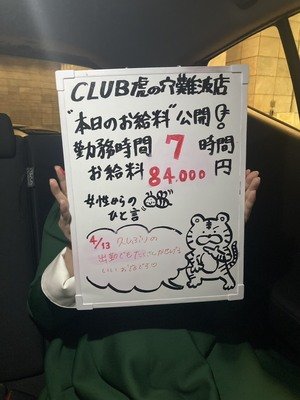 CLUB虎の穴難波店
"本日のお給料"公開!
勤務時間 7 時間
お給料 84,000円
女性からの
ひと言
4/13 久しぶりの
出勤でもたいにゅうできたら
いいお店です♡